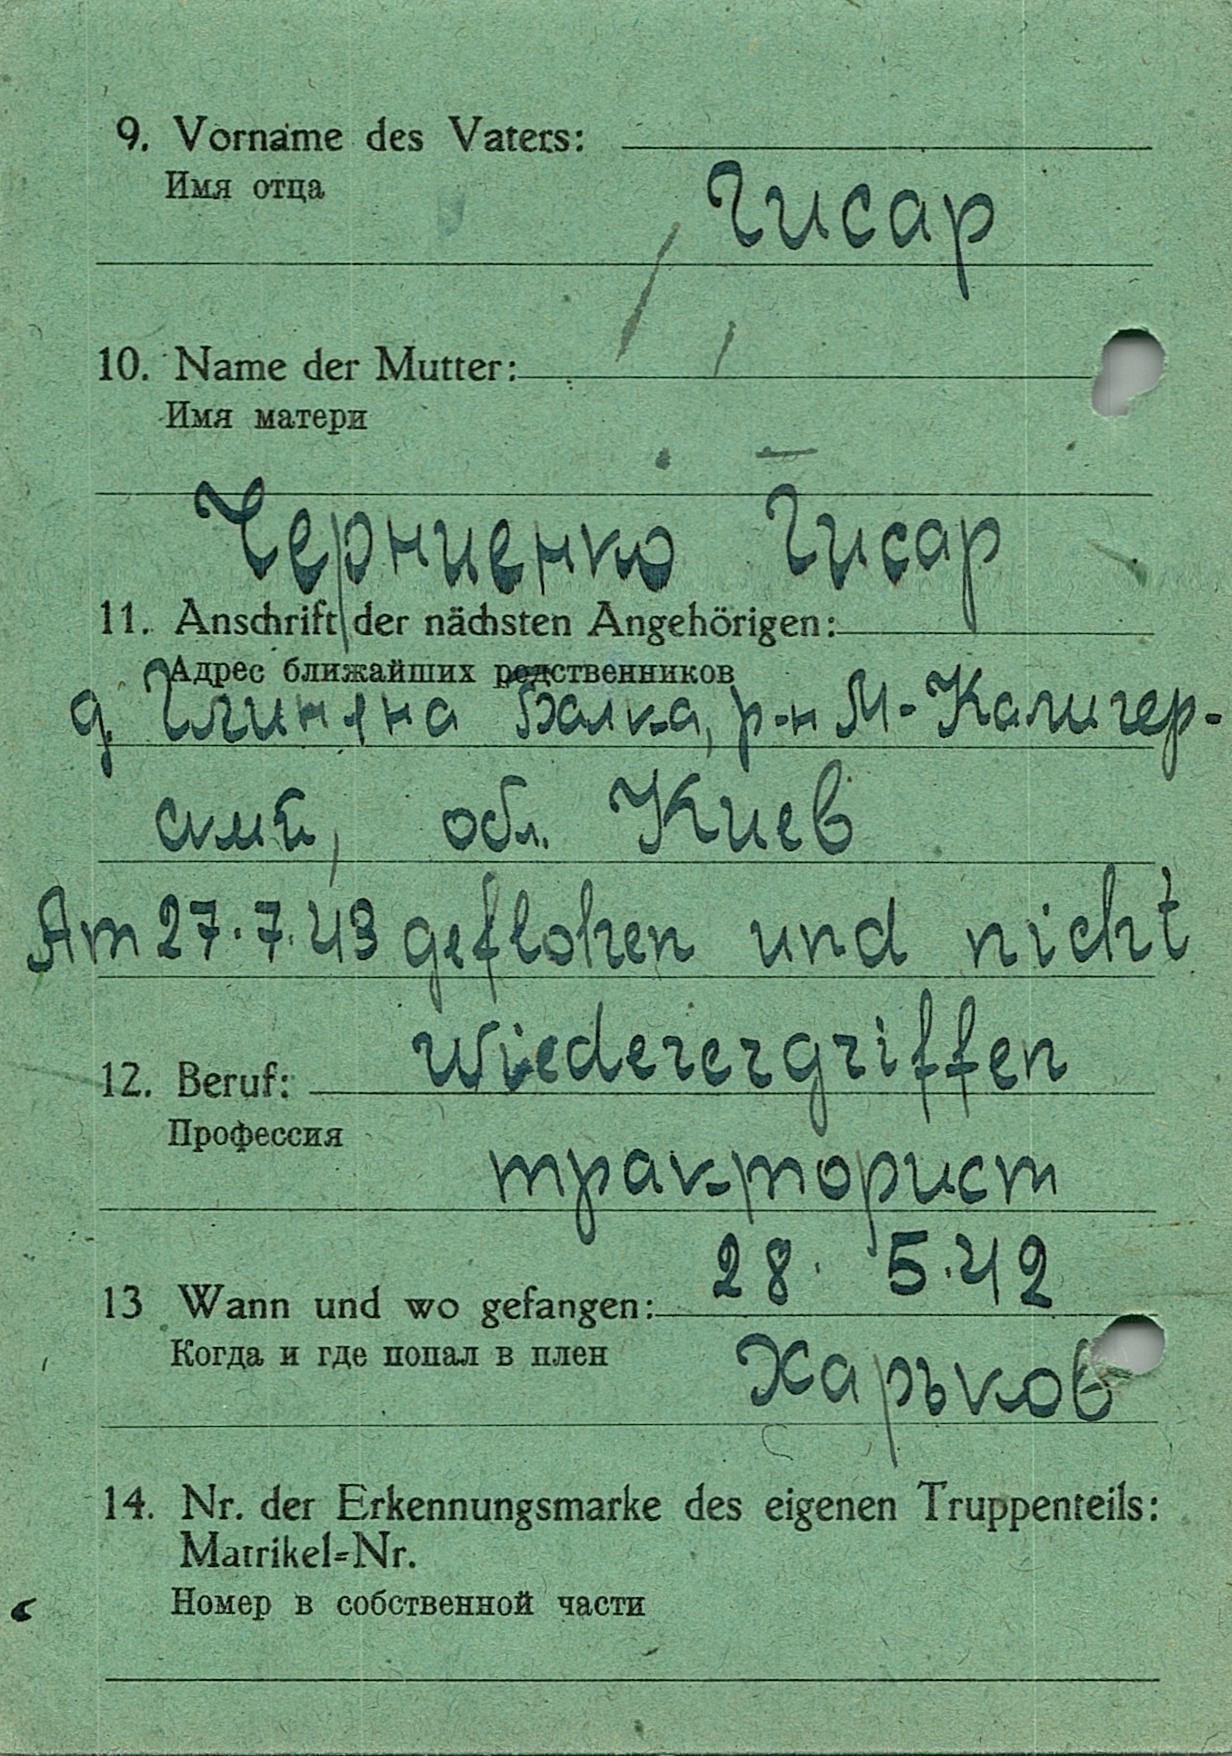 9. Vorname des Vaters:
Имя отца
Гисар
10. Name der Mutter:
Имя матери
Черниенко Гисар
11. Anschrift der nächsten Angehörigen:
Адрес ближайших родственников
д. Глиняна Балка, р-н М-Калигер-
ский, обл. Киев
Am 27.7.43 geflohen und nicht
wiederergriffen
12. Beruf:
Профессия
тракторист
28. 5.42
13 Wann und wo gefangen:
Когда и где попал в плен
Харьков
14. Nr. der Erkennungsmarke des eigenen Truppenteils:
Matrikel=Nr.
Номер в собственной части